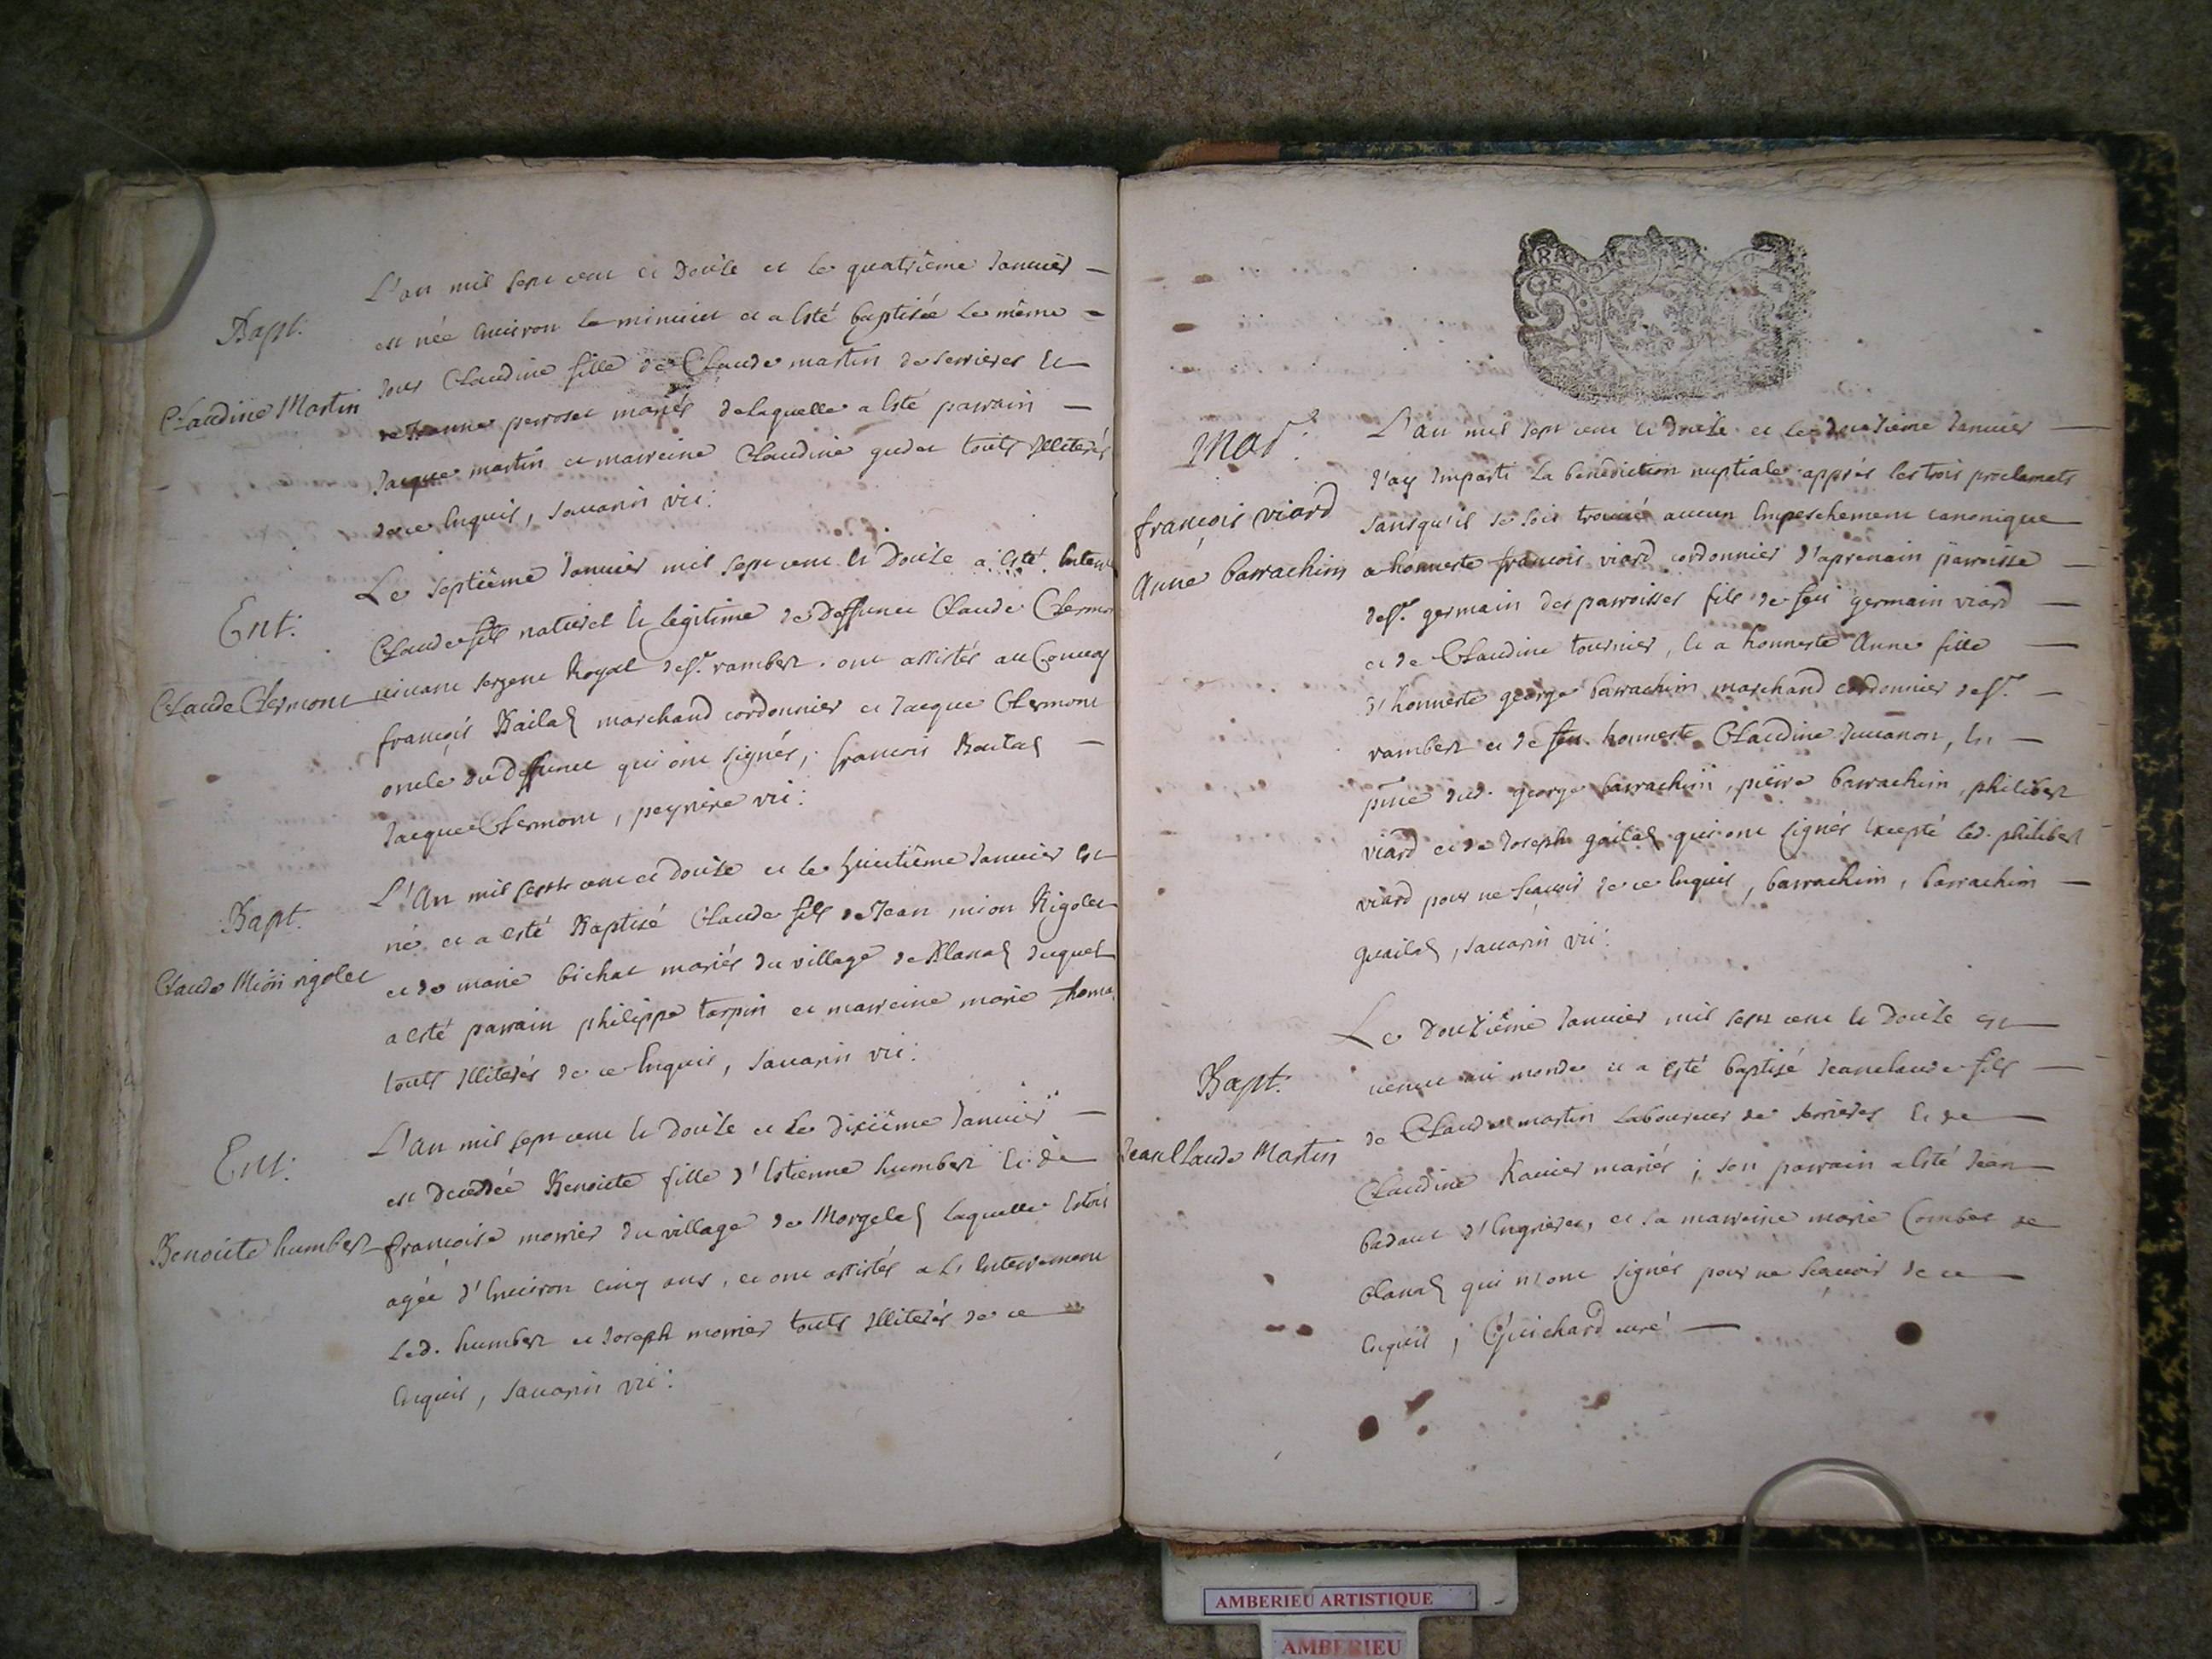 Bapt:
Claudine Martin
L'an mil sept cent et douze et le quatrième Januier
est née enuiron le minuict et a esté baptisée le même
Jour Claudine fille de Claude martin de serrieres et
de Jeanne perroset mariés de laquelle a esté parrain
Jacque martin et marreine Claudine gudet touts Illiterés
de ce enquis, sauarin vic:
Ent:
Claude Clermont
Le septième Januier mil sept cent et Douze a esté Enterré
Claude fils naturel et legitime de deffunct Claude Clermont
viuant sergent Royal de St. rambert. ont assistés au Conuoy
françois Bailaz marchand cordonnier et Jacque Clermont
oncle du deffunct qui ont signés, francois
Jacque Clermont, peyriere vic:
Bapt.
Claude Mion rigolet
L'An mil sept cent et douze et le huictième Januier est
né et a esté Baptisé Claude fils de Jean mion Rigolet
et de marie bichat mariés du village de Blanaz duquel
a esté parrain philippe tarpin et marreine marie thomas
touts Illiterés de ce enquis, sauarin vic:
Ent:
Benoicte humbert
L'An mil sept cent et douze et le dixième Januier
est decedée Benoicte fille d'Estienne humbert et de
francoise morrier du village de Morgelaz laquelle Estoit
agée d'enuiron cinq ans, et ont assistés a l'Enterrement
led. humbert et Joseph morrier touts Illiterés de ce
enquis, sauarin vic:
Mar.
françois viard
Anne barrachim
L'an mil sept cent et douze et le douzieme Januier
J'ay Imparti la benediction nuptiale apprès les trois proclamats
sans qu'il se soit trouué aucun Empeschement canonique
a honneste francois viard cordonnier d'apremain parroisse
de St. germain des parroisses fils de feu germain viard
et de Claudine tournier, et a honneste Anne fille
d'honneste george barrachim marchand cordonnier de St.
rambert et de feu honneste Claudine Juuanon, En
pnce dud. george barrachim, pierre barrachim, philibert
viard et de Joseph gailaz qui ont signés Excepté led. philibert
viard pour ne scauoir de ce enquis, barrachim, barrachim
guailaz, sauarin vic:
Bapt:
Jean Claude Martin
Le Douzième Januier mil sept cent et Douze est
venu au monde et a Esté baptisé Jeanclaude fils
de Claude martin Laboureur de serrieres et de
Claudine Rauier mariés; son parrain a Esté Jean
badaut d'Engrieres, et sa marreine marie Combet de
blanaz qui n'ont signés pour ne scauoir de ce
enquis, Guichard curé
AMBERIEU ARTISTIQUE
AMBERIEU